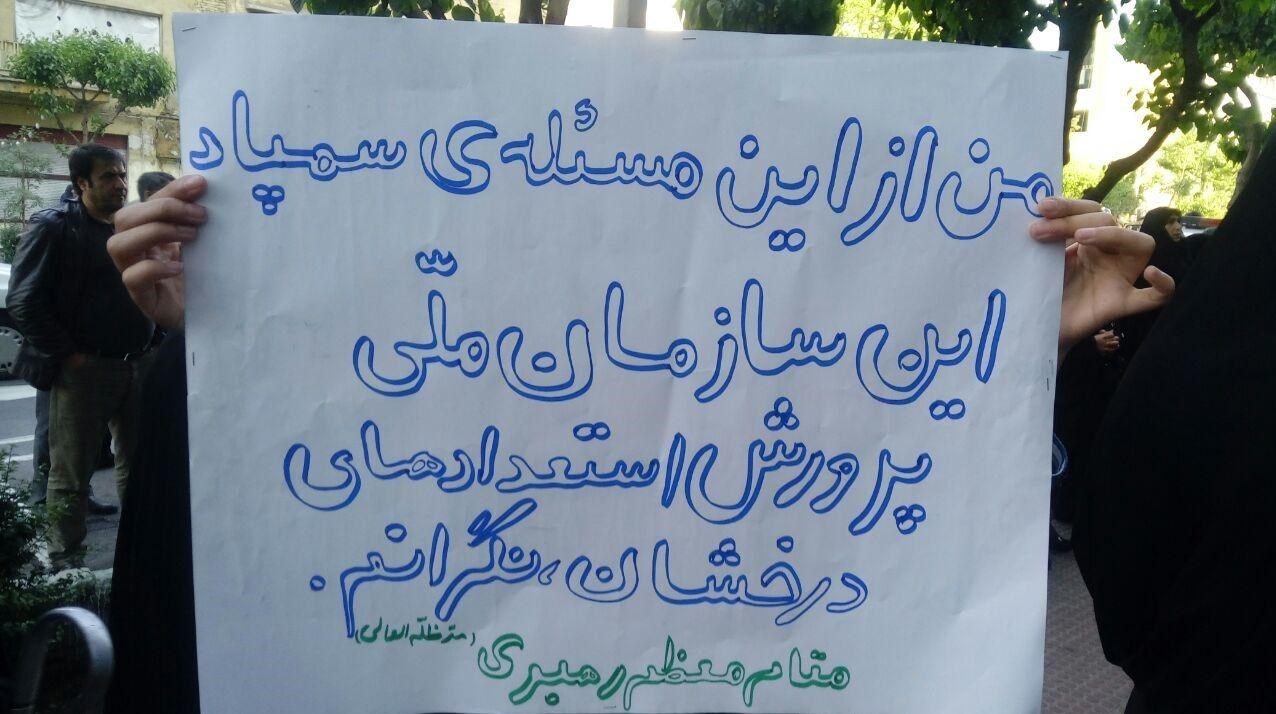 من از این مسئله‌ی سمپاد
این سازمان ملّی
پرورش استعدادهای
درخشان، نگرانم.
مقام معظم رهبری (مدّ ظلّه العالی)